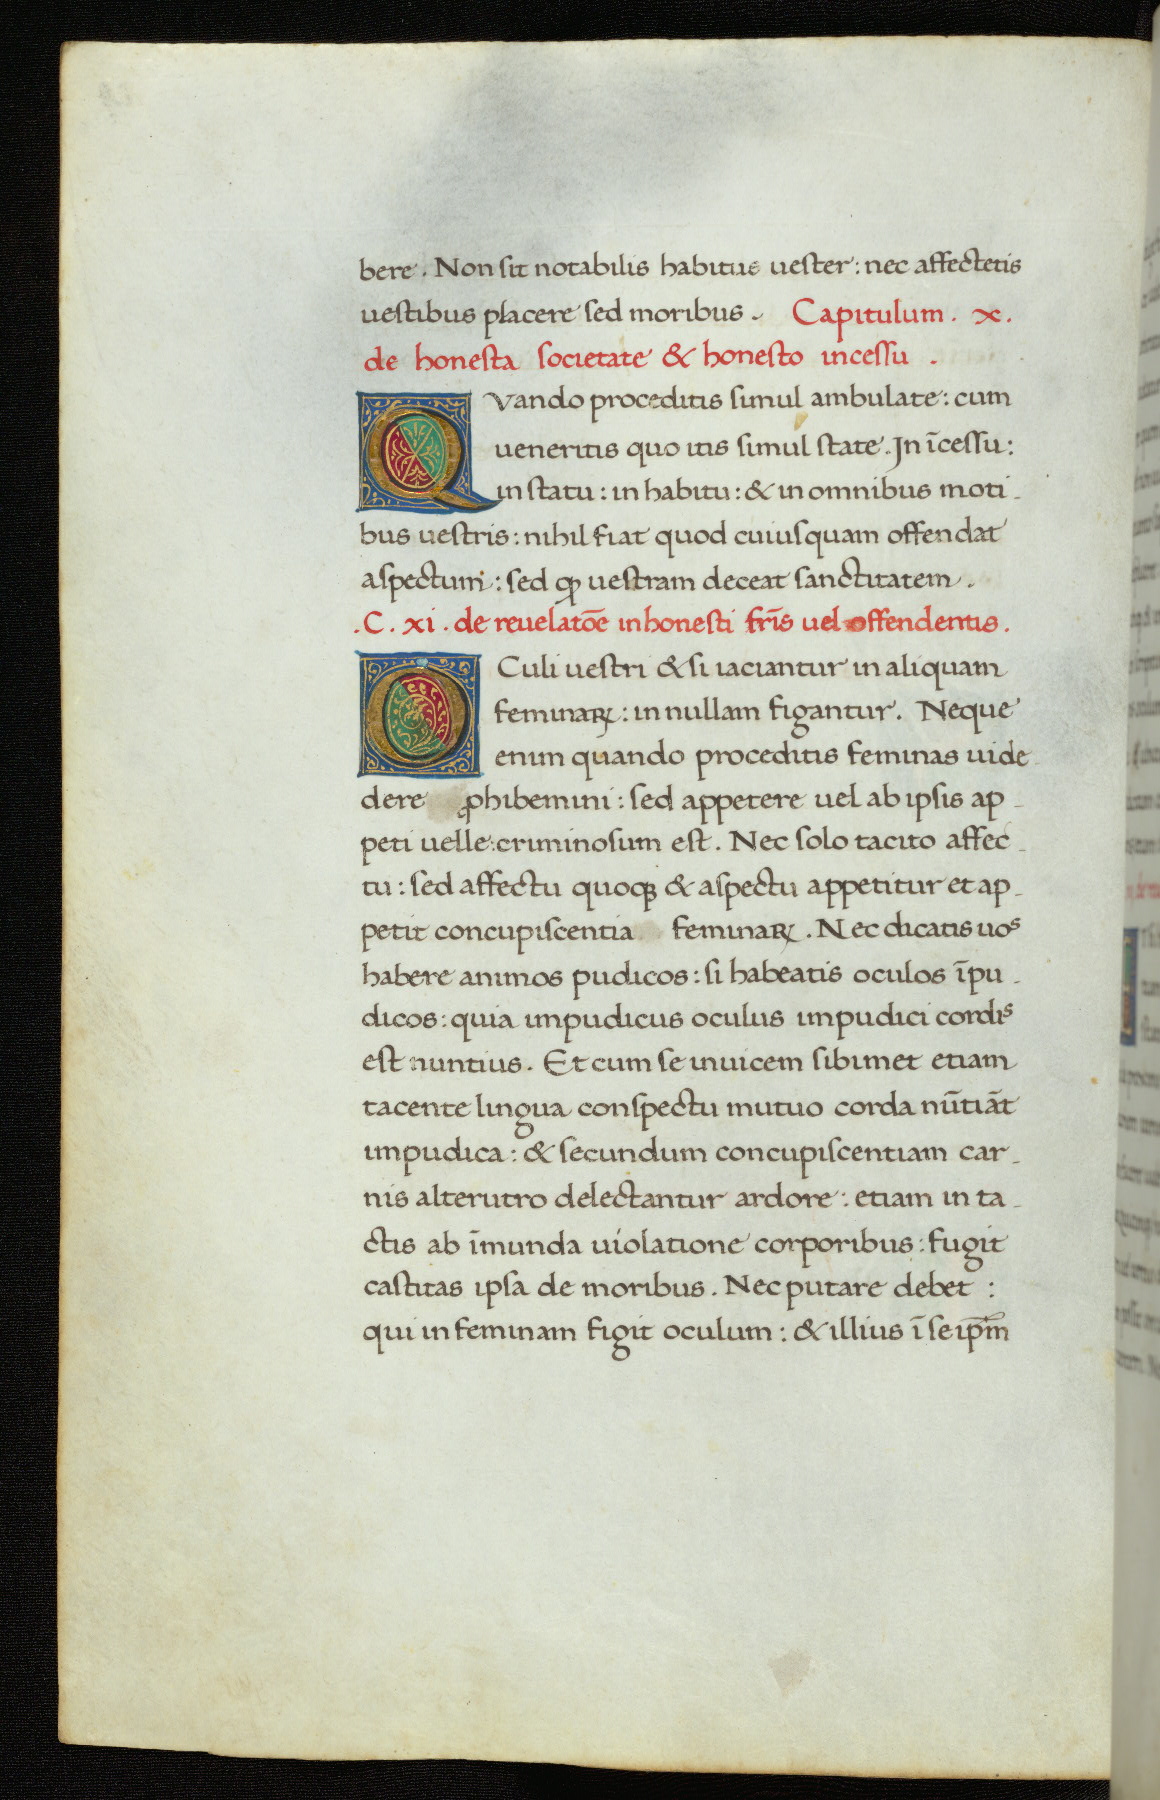 bere. Non sit notabilis habitus uester: nec affectetis
uestibus placere sed moribus. Capitulum. x.
de honesta societate & honesto incessu .
Quando proceditis simul ambulate: cum
ueneritis quo itis simul state. In īcessu:
in statu: in habitu: & in omnibus moti-
bus uestris: nihil fiat quod cuiusquam offendat
aspectum: sed qͦ uestram deceat sanctitatem.
.C. xi. de reuelatōe inhonesti fr̄is uel offendentis.
OCuli uestri & si iaciantur in aliquam
feminaꝝ: in nullam figantur. Neque
enim quando proceditis feminas uide-
dere ꝓhibemini: sed appetere uel ab ipsis ap-
peti uelle: criminosum est. Nec solo tacito affec-
tu: sed affectu quoqꝫ & aspectu appetitur et ap-
petit concupiscentia feminaꝝ. Nec dicatis uos
habere animos pudicos: si habeatis oculos īpu-
dicos: quia impudicus oculus impudici cordis
est nuntius. Et cum se inuicem sibimet etiam
tacente lingua conspectu mutuo corda nūtiāt
impudica: & secundum concupiscentiam car-
nis alterutro delectantur ardore: etiam in ta-
ctis ab īmunda uiolatione corporibus: fugit
castitas ipsa de moribus. Nec putare debet :
qui in feminam figit oculum: & illius ī se ip̄m